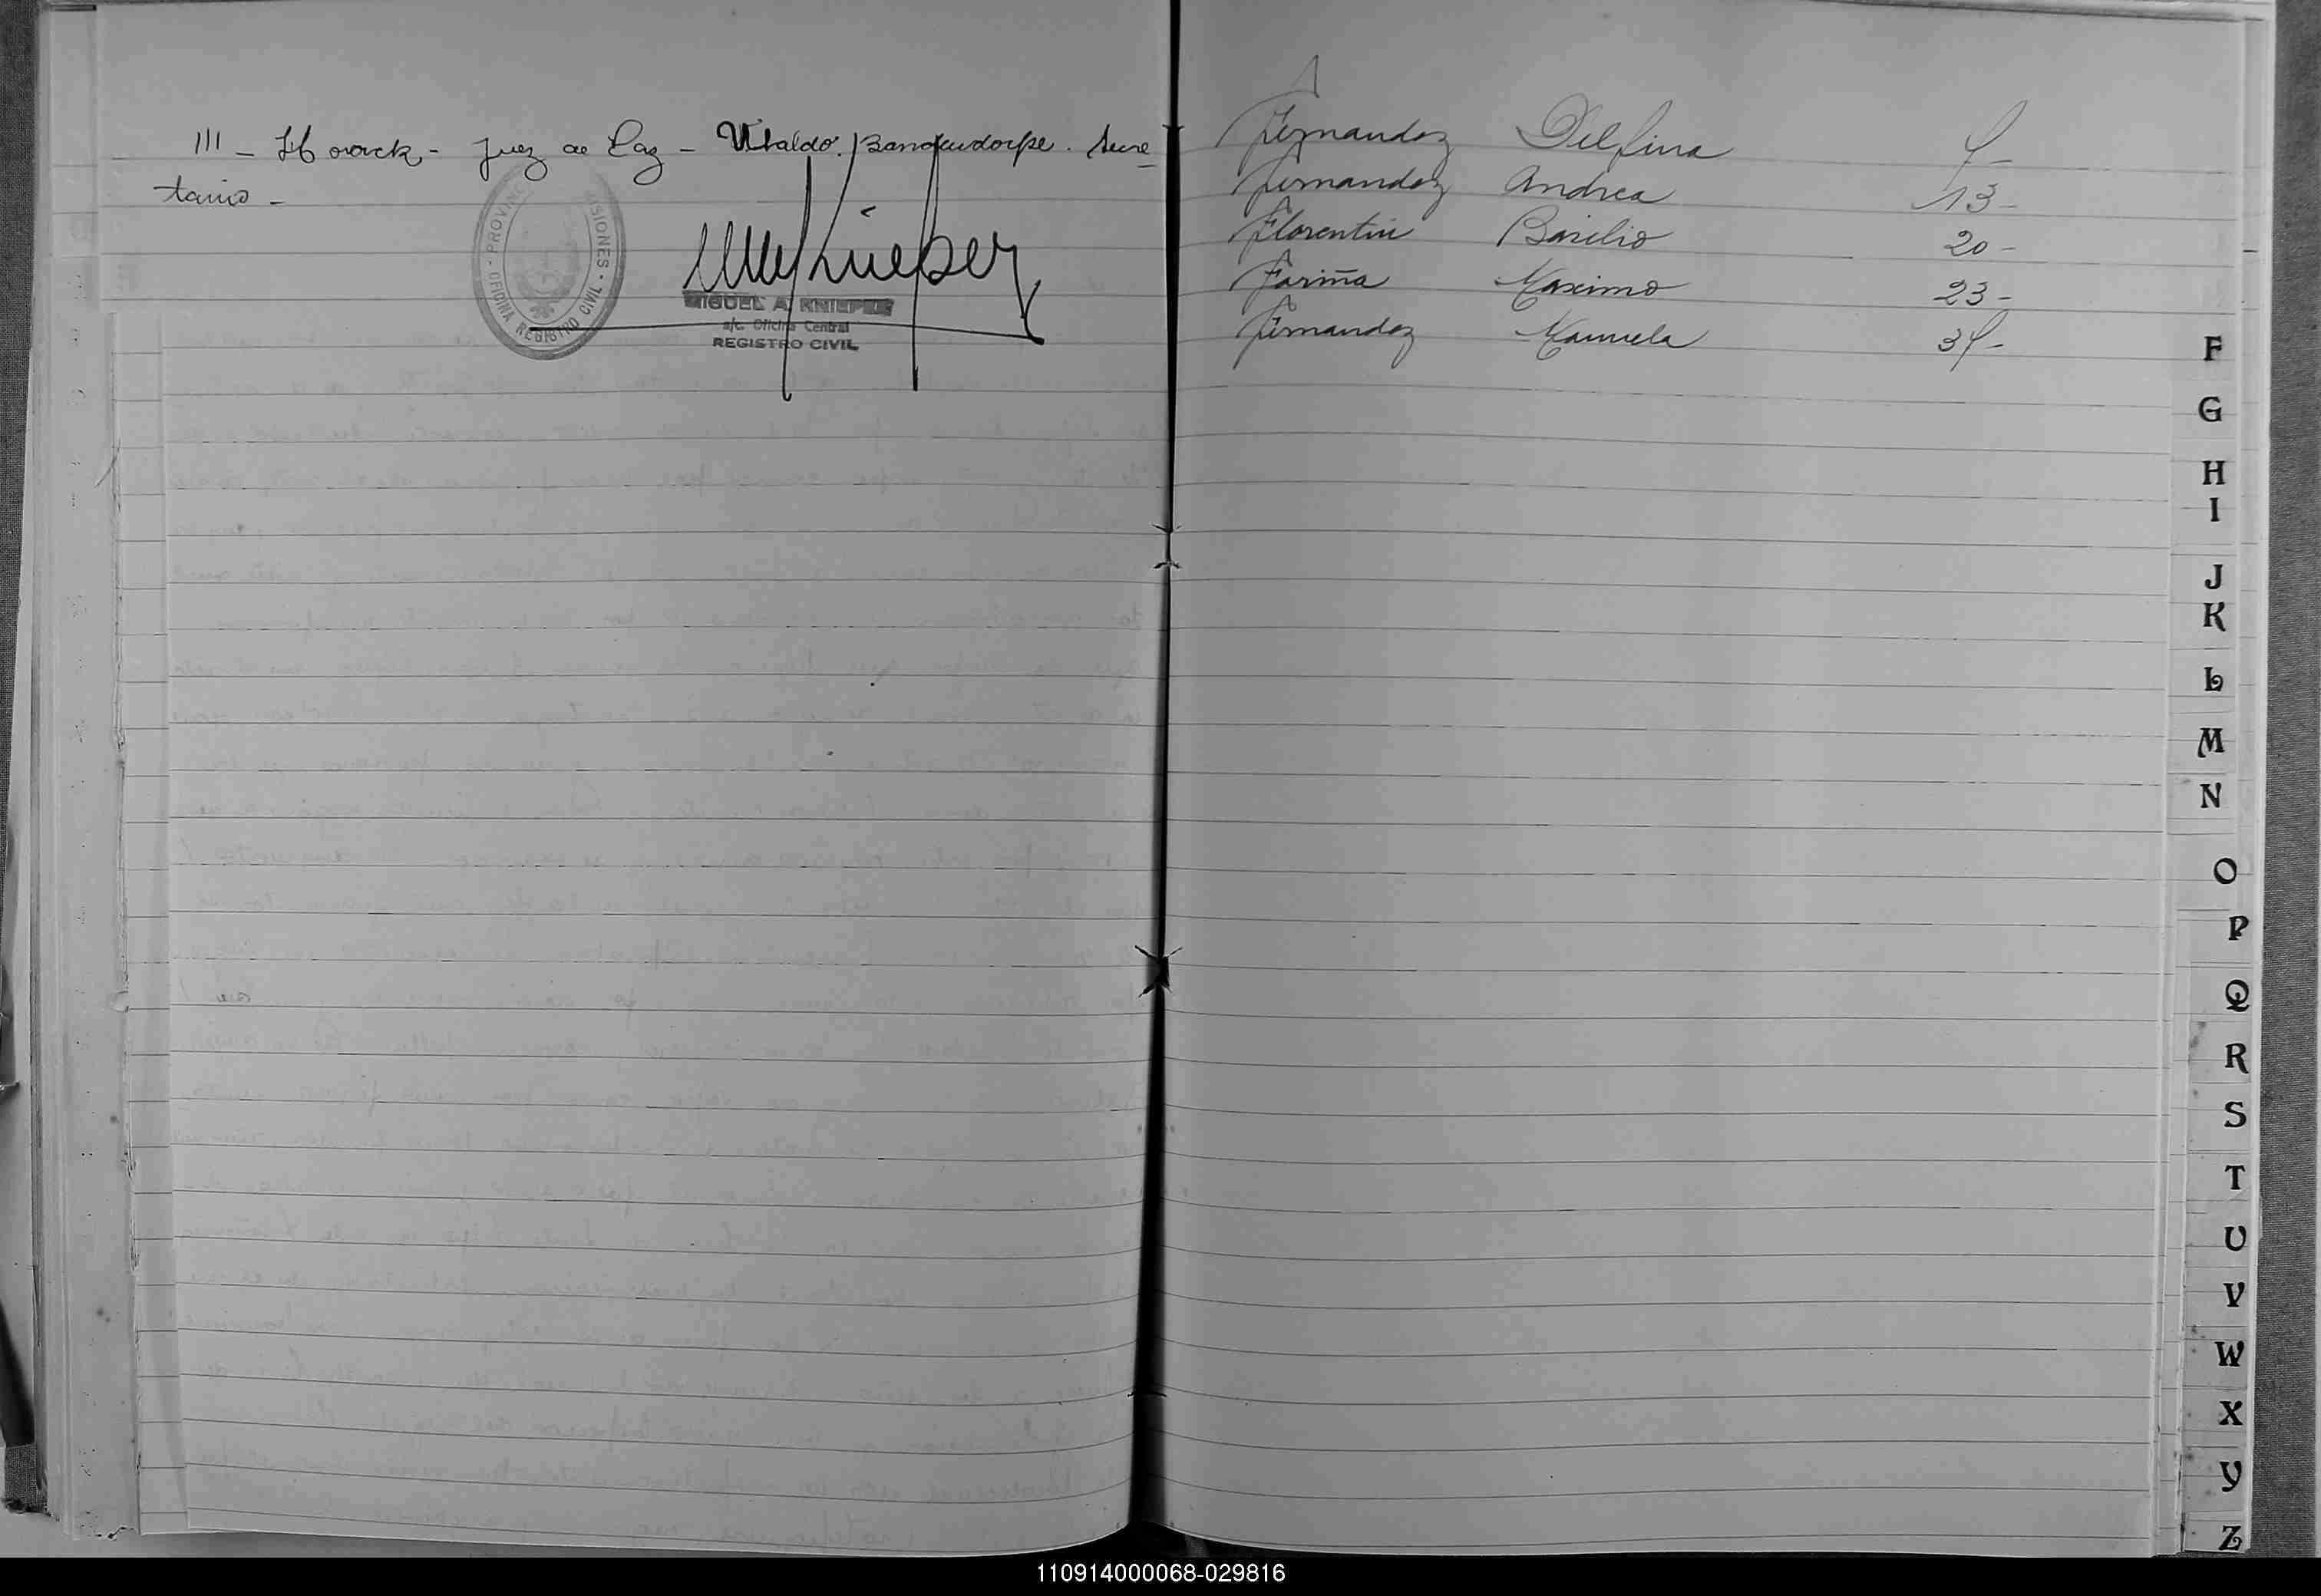 III - Horack - Juez de Paz - Ubaldo. . Secre
tario -
PROVINCIA MISIONES
OFICINA REGISTRO CIVIL
MIGUEL A. KNIEPER
a/c. Oficina Central
REGISTRO CIVIL
Fernandez Delfina 9-
Fernandez Andrea 13-
Florentin Basilio 20-
Fariña Maximo 23-
Fernandez Manuela 39-
F
G
H
I
J
K
L
M
N
O
P
Q
R
S
T
U
V
W
X
Y
Z
110914000068-029816